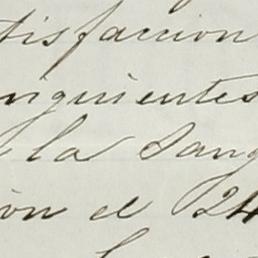 tisfaccion
nguientes
la sang
ion el 24